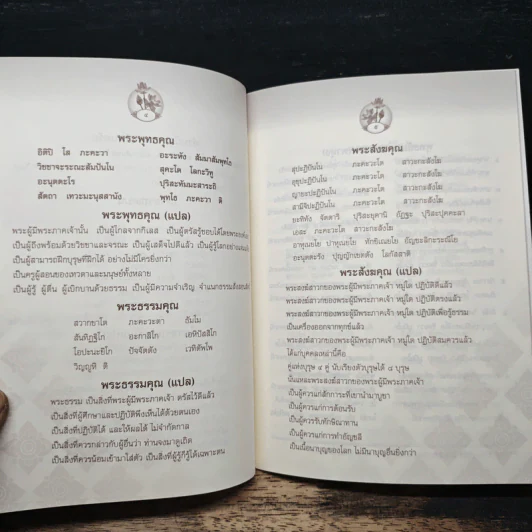 ๔
พระพุทธคุณ
อิติปิ โส ภะคะวา อะระหัง สัมมาสัมพุทโธ
วิชชาจะระณะสัมปันโน สุคะโต โลกะวิทู
อะนุตตะโร ปุริสะทัมมะสาระถิ
สัตถา เทวะมะนุสสานัง พุทโธ ภะคะวา ติ
พระพุทธคุณ (แปล)
พระผู้มีพระภาคเจ้านั้น เป็นผู้ไกลจากกิเลส เป็นผู้ตรัสรู้ชอบได้โดยพระองค์เอง
เป็นผู้ถึงพร้อมด้วยวิชชาและจรณะ เป็นผู้เสด็จไปดีแล้ว เป็นผู้รู้โลกอย่างแจ่มแจ้ง
เป็นผู้สามารถฝึกบุรุษที่ฝึกได้ อย่างไม่มีใครยิ่งกว่า
เป็นครูผู้สอนของเทวดาและมนุษย์ทั้งหลาย
เป็นผู้รู้ ผู้ตื่น ผู้เบิกบานด้วยธรรม เป็นผู้มีความจำเริญ จำแนกธรรมสั่งสอนสัตว์
พระธรรมคุณ
สวากขาโต ภะคะวะตา ธัมโม
สันทิฏฐิโก อะกาลิโก เอหิปัสสิโก
โอปะนะยิโก ปัจจัตตัง เวทิตัพโพ
วิญญูหิ ติ
พระธรรมคุณ (แปล)
พระธรรม เป็นสิ่งที่พระผู้มีพระภาคเจ้า ตรัสไว้ดีแล้ว
เป็นสิ่งที่ผู้ศึกษาและปฏิบัติพึงเห็นได้ด้วยตนเอง
เป็นสิ่งที่ปฏิบัติได้ และให้ผลได้ ไม่จำกัดกาล
เป็นสิ่งที่ควรกล่าวกับผู้อื่นว่า ท่านจงมาดูเถิด
เป็นสิ่งที่ควรน้อมเข้ามาใส่ตัว เป็นสิ่งที่ผู้รู้ก็รู้ได้เฉพาะตน
๕
พระสังฆคุณ
สุปะฏิปันโน ภะคะวะโต สาวะกะสังโฆ
อุชุปะฏิปันโน ภะคะวะโต สาวะกะสังโฆ
ญายะปะฏิปันโน ภะคะวะโต สาวะกะสังโฆ
สามีจิปะฏิปันโน ภะคะวะโต สาวะกะสังโฆ
ยะทิทัง จัตตาริ ปุริสะยุคานิ อัฏฐะ ปุริสะปุคคะลา
เอสะ ภะคะวะโต สาวะกะสังโฆ
อาหุเนยโย ปาหุเนยโย ทักขิเณยโย อัญชะลิกะระณีโย
อะนุตตะรัง ปุญญักเขตตัง โลกัสสาติ
พระสังฆคุณ (แปล)
พระสงฆ์สาวกของพระผู้มีพระภาคเจ้า หมู่ใด ปฏิบัติดีแล้ว
พระสงฆ์สาวกของพระผู้มีพระภาคเจ้า หมู่ใด ปฏิบัติตรงแล้ว
พระสงฆ์สาวกของพระผู้มีพระภาคเจ้า หมู่ใด ปฏิบัติเพื่อรู้ธรรม
เป็นเครื่องออกจากทุกข์แล้ว
พระสงฆ์สาวกของพระผู้มีพระภาคเจ้า หมู่ใด ปฏิบัติสมควรแล้ว
ได้แก่บุคคลเหล่านี้คือ
คู่แห่งบุรุษ ๔ คู่ นับเรียงตัวบุรุษได้ ๘ บุรุษ
นั่นแหละพระสงฆ์สาวกของพระผู้มีพระภาคเจ้า
เป็นผู้ควรแก่สักการะที่เขานำมาบูชา
เป็นผู้ควรแก่การต้อนรับ
เป็นผู้ควรรับทักษิณาทาน
เป็นผู้ควรแก่การทำอัญชลี
เป็นเนื้อนาบุญของโลก ไม่มีนาบุญอื่นยิ่งกว่า